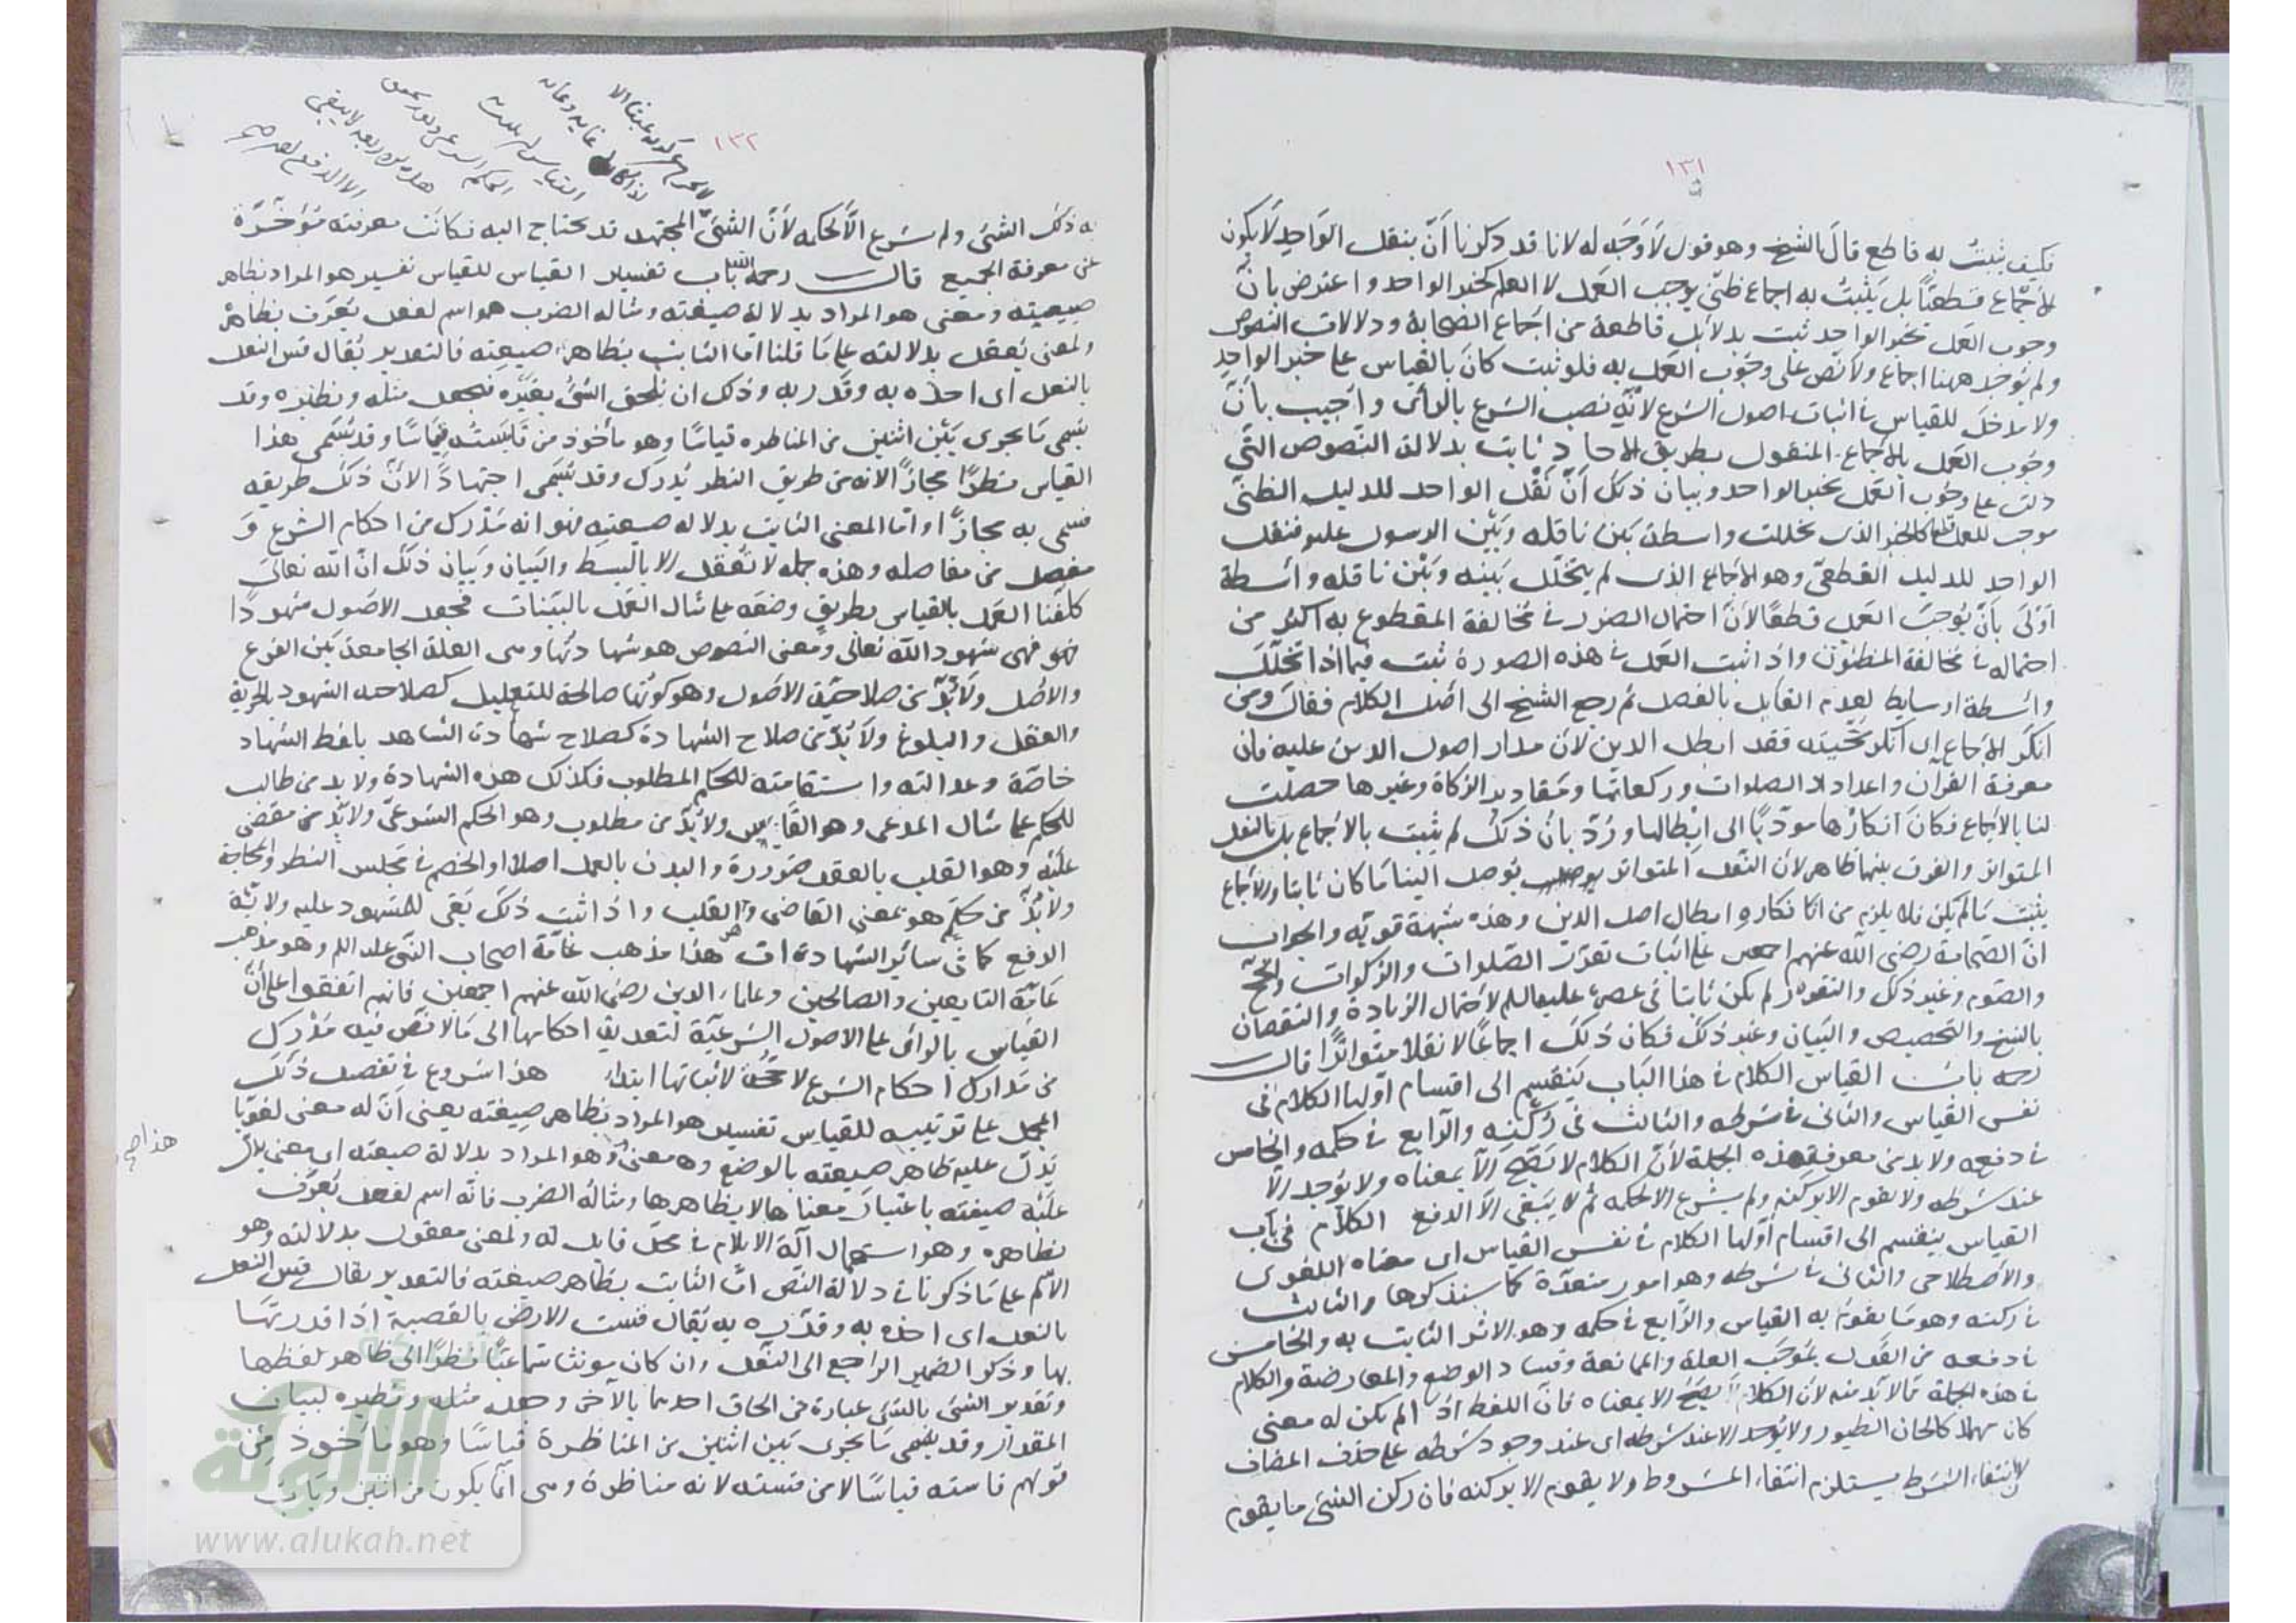 ١٣١
فكيف يثبت به قاطع قال الشيخ وهو قول لا وجه له لانا قد ذكرنا أن بنقل الواحد لا يكون
الاجماع قطعيا بل يثبت به اجماع ظني يوجب العمل لا العلم كخبر الواحد واعترض بان
وجوب العمل بخبر الواحد ثبت بدلائل قاطعة من اجماع الصحابة ودلالات النصوص
ولم يوجد ههنا اجماع ولا نص على وجوب العمل به فلو ثبت كان بالقياس على خبر الواحد
ولا مدخل للقياس في اثبات اصول الشرع لانه نصب الشرع بالرأي وأجيب بأن
وجوب العمل بالاجماع المنقول بطريق الاحاد ثابت بدلالة النصوص التي
دلت على وجوب العمل بخبر الواحد وبيان ذلك أن نقل الواحد للدليل الظني
موجب للعمل كالخبر الذي تخللت واسطة بين ناقله وبين الرسول عليه فنقل
الواحد للدليل القطعي وهو الاجماع الذي لم يتخلل بينه وبين ناقله واسطة
اولى بأن يوجب العمل قطعا لأن احتمال الضرر في مخالفة المقطوع به اكثر من
احتماله في مخالفة المظنون واذا ثبت العمل في هذه الصورة ثبت فيما اذا تخلل
واسطة او سايط لعدم القايل بالفصل ثم رجع الشيخ الى اصل الكلام فقال ومن
انكر الاجماع اي انكر حجيته فقد ابطل الدين لان مدار اصول الدين عليه فان
معرفة القرآن واعداد الصلوات وركعاتها ومقادير الزكاة وغيرها حصلت
لنا بالاجماع فكان انكارها مودّيا الى ابطالها ورُدّ بان ذلك لم يثبت بالاجماع بل بالنقل
المتواتر والفرق بينهما ظاهر لان النقل المتواتر يوصل الينا ما كان ثابتا والاجماع
يثبت ما لم يكن فلا يلزم من انكاره ابطال اصل الدين وهذه شبهة قوية والجواب
ان الصحابة رضي الله عنهم اجمعوا على اثبات تقرر الصلوات والزكوات والحج
والصوم وغير ذلك والتقرر لم يكن ثابتا في عصره عليه السلم لاحتمال الزيادة والنقصان
بالنسخ والتخصيص والبيان وغير ذلك فكان ذلك اجماعا لا نقلا متواترا قال
رحمه باب القياس الكلام في هذا الباب ينقسم الى اقسام اولها الكلام في
نفس القياس والثاني في شرطه والثالث في ركنه والرابع في حكمه والخامس
في دفعه ولا بد من معرفة هذه الجملة لأن الكلام لا يصح الا بمعناه ولا يوجد الا
عند شرطه ولا يقوم الا بركنه ولم يشرع الا لحكمه ثم لا يبقى الا الدفع الكلام في باب
القياس ينقسم الى اقسام أولها الكلام في نفس القياس اي معناه اللغوي
والاصطلاحي والثاني في شرطه وهو امور متعددة كما سنذكرها والثالث
في ركنه وهو ما يقوم به القياس والرابع في حكمه وهو الاثر الثابت به والخامس
في دفعه من القول بموجب العلة والممانعة وفساد الوضع والمعارضة والكلام
في هذه الجملة مما لا بد منه لان الكلام لا يصح الا بمعناه فان اللفظ اذا لم يكن له معنى
كان مهملا كالحان الطيور ولا يوجد الا عند شرطه اي عند وجود شرطه على حذف المضاف
لانتفاء الشرط يستلزم انتفاء المشروط ولا يقوم الا بركنه فان ركن الشيء ما يقوم
١٣٢
به ذلك الشيء ولم يشرع الا لحكمه لأن الشيء المجتهد قد يحتاج اليه فكانت معرفته مؤخرة
عن معرفة الجميع قال رحمه الله باب تفسير القياس للقياس تفسير هو المراد بظاهر
صيغته ومعنى هو المراد بدلالة صيغته ومثاله الضرب هو اسم لفعل يعرف بظاهره
ولمعنى يعقل بدلالته على ما قلنا اما الثابت بظاهر صيغته فالتقدير يقال قس النعل
بالنعل اي احذه به وقدره به وذلك ان يلحق الشيء بغيره فيجعل مثله ونظيره وقد
يسمى ما يجري بين اثنين من المناظره قياسا وهو مأخوذ من قايسته قياسا وقد يسمى هذا
القياس نظرا مجازا لانه من طريق النظر يدرك وقد يسمى اجتهادا لان ذلك طريقه
فسمي به مجازا واما المعنى الثابت بدلالة صيغته فهو انه مدرك من احكام الشرع و
مفصل من مفاصله وهذه جملة لا تعقل الا بالبسط والبيان وبيان ذلك ان الله تعالى
كلفنا العمل بالقياس بطريق وضعه على مثال العمل بالبينات فجعل الاصول شهودا
فهي شهود الله تعالى ومعنى النصوص هو شهادتها وهي العلة الجامعة بين الفرع
والاصل ولا بد من صلاحية الاصول وهو كونها صالحة للتعليل كصلاحية الشهود بالحرية
والعقل والبلوغ ولا بد من صلاح الشهادة كصلاح شهادة الشاهد بلفظ الشهاد
خاصة وعدالته واستقامته للحكم المطلوب فكذلك هذه الشهادة ولا بد من طالب
للحكم على مثال المدعي وهو القايس ولا بد من مطلوب وهو الحكم الشرعي ولا بد من مقضي
عليه وهو القلب بالعقد ضرورة والبدن بالعمل اصلا او الخصم في مجلس النظر والمحاجة
ولا بد من حكم هو بمعنى القاضي وهو القلب واذا ثبت ذلك بقي للمشهود عليه ولاية
الدفع كما في سائر الشهادات هذا مذهب عامة اصحاب النبي عليه السلم وهو مذهب
عامة التابعين والصالحين وعلماء الدين رضي الله عنهم اجمعين فانهم اتفقوا على أن
القياس بالرأي على الاصول الشرعية لتعدية احكامها الى ما لا نص فيه مدرك
من مدارك احكام الشرع لا حجة لاثباتها ابتداء هذا شروع في تفصيل ذلك
المجمل على ترتيبه للقياس تفسير هو المراد بظاهر صيغته يعني أن له معنى لغويا
يدل عليه ظاهر صيغته بالوضع ومعنى هو المراد بدلالة صيغته اي معنى يدل
عليه صيغته باعتبار معناها لا بظاهرها ومثاله الضرب فانه اسم لفعل يعرف
بظاهره وهو استعمال آلة الايلام في محل قابل له ولمعنى معقول بدلالته وهو
الالم على ما ذكرنا في دلالة النص اما الثابت بظاهر صيغته فالتقدير يقال قس النعل
بالنعل اي احذه به وقدره به يقال قست الارض بالقصبة اذا قدرتها
بها وذكر الضمير الراجع الى النعل وان كان مونثا سماعيا نظرا الى ظاهر لفظها
وتقدير الشيء بالشيء عبارة عن الحاق احدهما بالآخر وجعله مثله ونظيره لبيان
المقدار وقد يسمى ما يجري بين اثنين من المناظرة قياسا وهو مأخوذ من
قولهم قايسته قياسا لا من قسته لانه مناظرة وهي انما يكون من اثنين
www.alukah.net